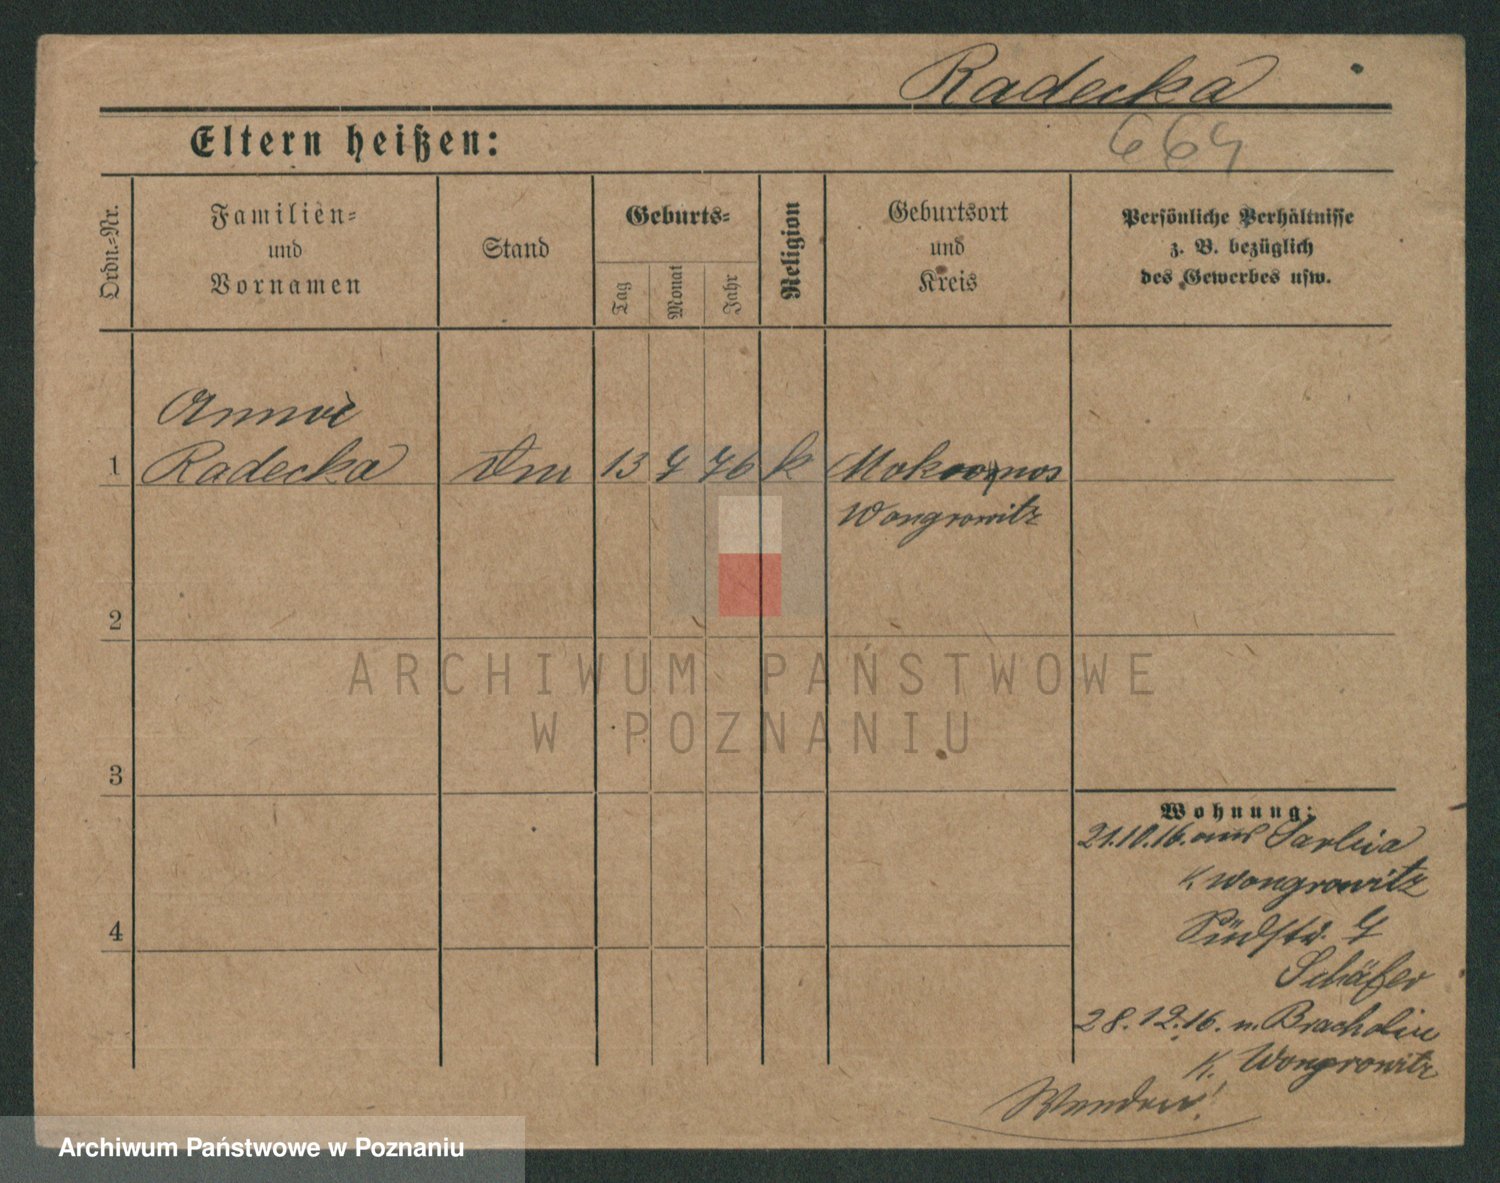 Radecka
664
Eltern heißen:
Ordn.=Nr.
Familien=
und
Vornamen
Stand
Geburts=
Tag
Monat
Jahr
Religion
Geburtsort
und
Kreis
Persönliche Verhältnisse
z. B. bezüglich
des Gewerbes usw.
Anna
1 Radecka 13 76 k Mokronos
Wongrowitz
2
3
4
Wohnung:
21.10.16. aus Sarbia
K. Wongrowitz
Südstr. 4
Schäfer
28.12.16. n. Bracholin
K. Wongrowitz
Wenden!
ARCHIWUM PAŃSTWOWE
W POZNANIU
Archiwum Państwowe w Poznaniu